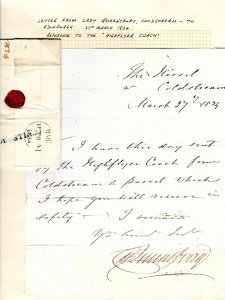 LETTER FROM LADY QUEENSBERRY, COLDSTREAM — TO
EDINBURGH 27th MARCH 1824.
REFERENCE TO THE "HIGHFLYER COACH"
The Hirsel
Coldstream
March 27th 1824
I have this day sent
by the Highflyer Coach from
Coldstream a parcel which
I hope you will receive in
safety — I remain
MAR